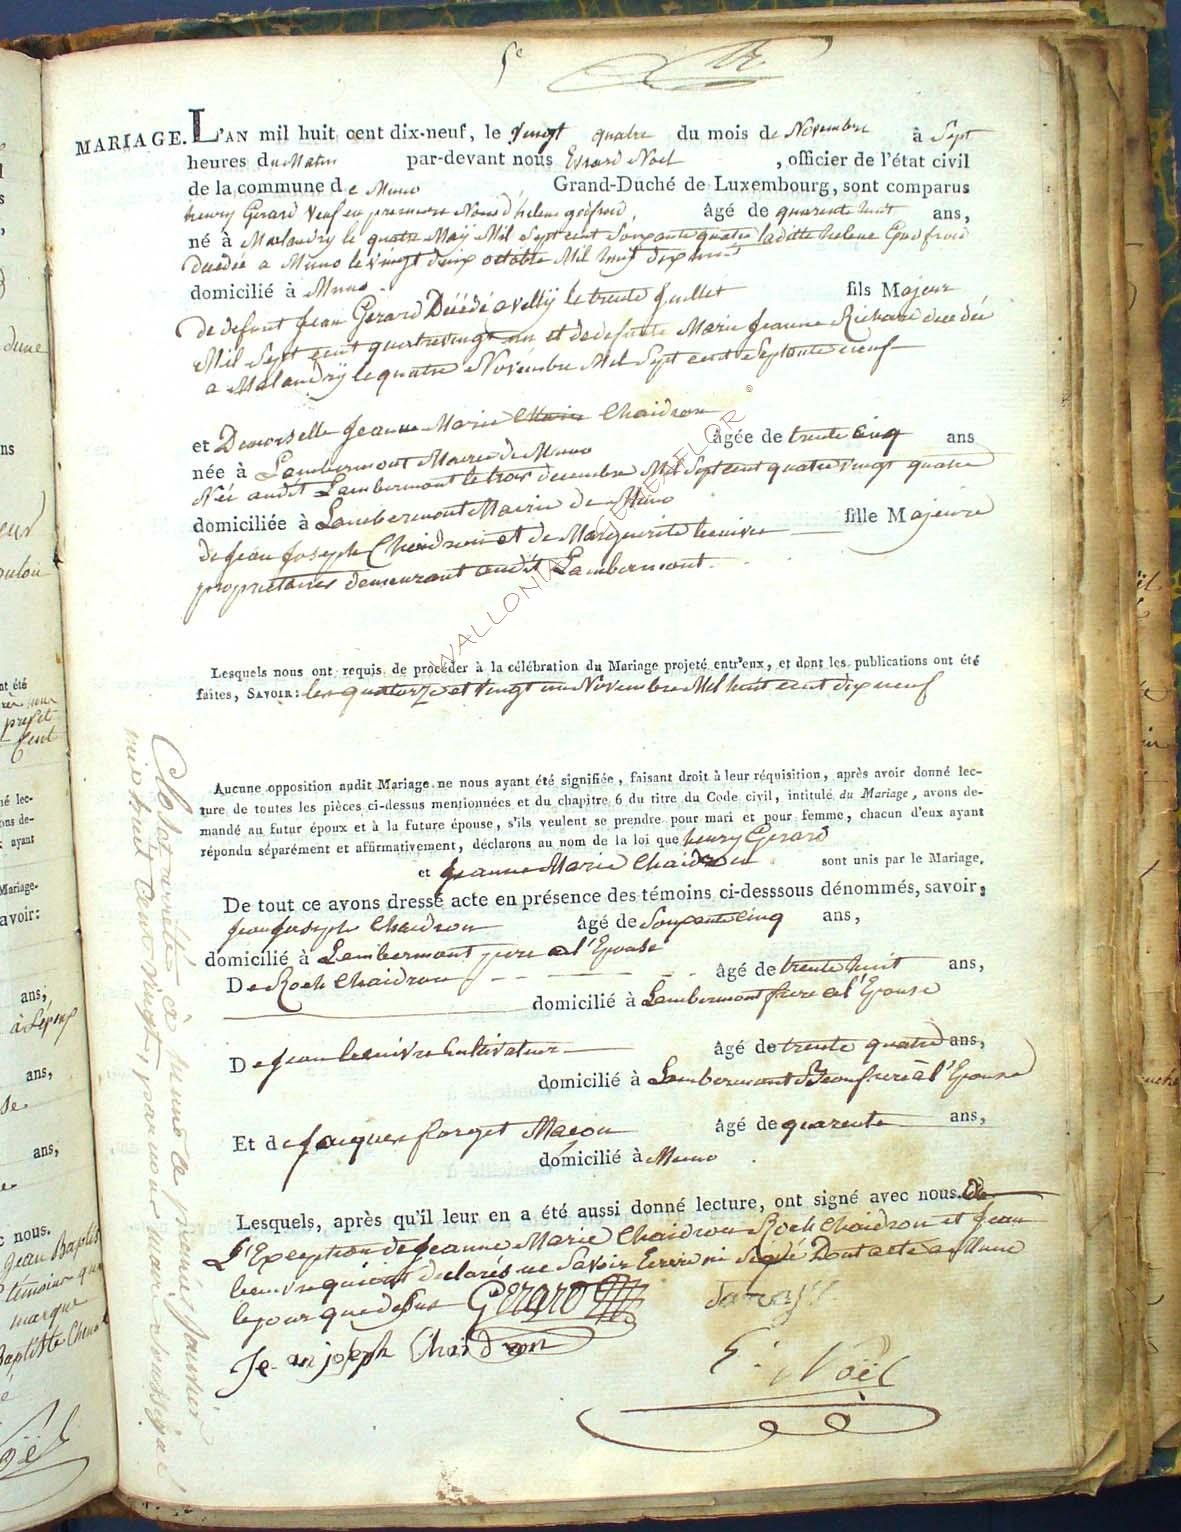 5e
MARIAGE. L'AN mil huit cent dix-neuf, le vingt quatre du mois de Novembre à Sept
heures du Matin par-devant nous Evrard Noel, officier de l'état civil
de la commune de Muno Grand-Duché de Luxembourg, sont comparus
henry Gerard Veuf en premiere Noces d'helene godfroid, âgé de quarente huit ans,
né à Malandry le quatre Maÿ Mil Sept cent Soixante quatre laditte helene Godfroid
dècèdée a Muno le vingt deux octobre Mil huit dix
domicilié à Muno fils Majeur
de defunt Jean Gerard Décédé a velly le trente Juillet
Mil Sept cent quatrevingt un et de defunte Marie Jeanne Richard décédée
a Malandrÿ le quatre Novembre Mil Sept cent Septante neuf
et Demoiselle Jeanne Marie Chaidron âgée de trente cinq ans
née à Lambermont Mairie de Muno
Née audit Lambermont le trois decembre Mil Sept cent quatre vingt quatre
domiciliée à Lambermont Mairie de Muno fille Majeure
de Jean Joseph Chaidron et de Marguerite
proprietaires demeurant audit Lambermont.
Lesquels nous ont requis de procéder à la célébration du Mariage projeté entr'eux, et dont les publications ont été
faites, SAVOIR: les quatorze et vingt un Novembre Mil huit cent dix neuf
Aucune opposition audit Mariage ne nous ayant été signifiée, faisant droit à leur réquisition, après avoir donné lec-
ture de toutes les pièces ci-dessus mentionnées et du chapitre 6 du titre du Code civil, intitulé du Mariage, avons de-
mandé au futur époux et à la future épouse, s'ils veulent se prendre pour mari et pour femme, chacun d'eux ayant
répondu séparément et affirmativement, déclarons au nom de la loi que henry Gerard
et Jeanne Marie Chaidron sont unis par le Mariage.
De tout ce avons dressé acte en présence des témoins ci-desssous dénommés, savoir:
Jean Joseph Chaidron âgé de Soixante cinq ans,
domicilié à Lambermont pere a l'Epouse
De Roch Chaidron âgé de trente huit ans,
domicilié à Lambermont frere a l'Epouse
De Jean Cultivateur âgé de trente quatre ans,
domicilié à Lambermont Beaufrere à l'Epouse
Et de Jacques forget Maçon âgé de quarente ans,
domicilié à Muno
Lesquels, après qu'il leur en a été aussi donné lecture, ont signé avec nous. a
L'Exception de Jeanne Marie Chaidron Roch Chaidron et Jean
qui ont declarés ne Savoir Ecrire ni Signé Dont acte a Muno
le jour que dessus GERARD
Jean joseph Chaidron
E. Noël
Clos et arrêté à Muno le premier janvier
mil huit cent vingt, par nous maire soussigné
WALLONIA GENEAFLOR ©